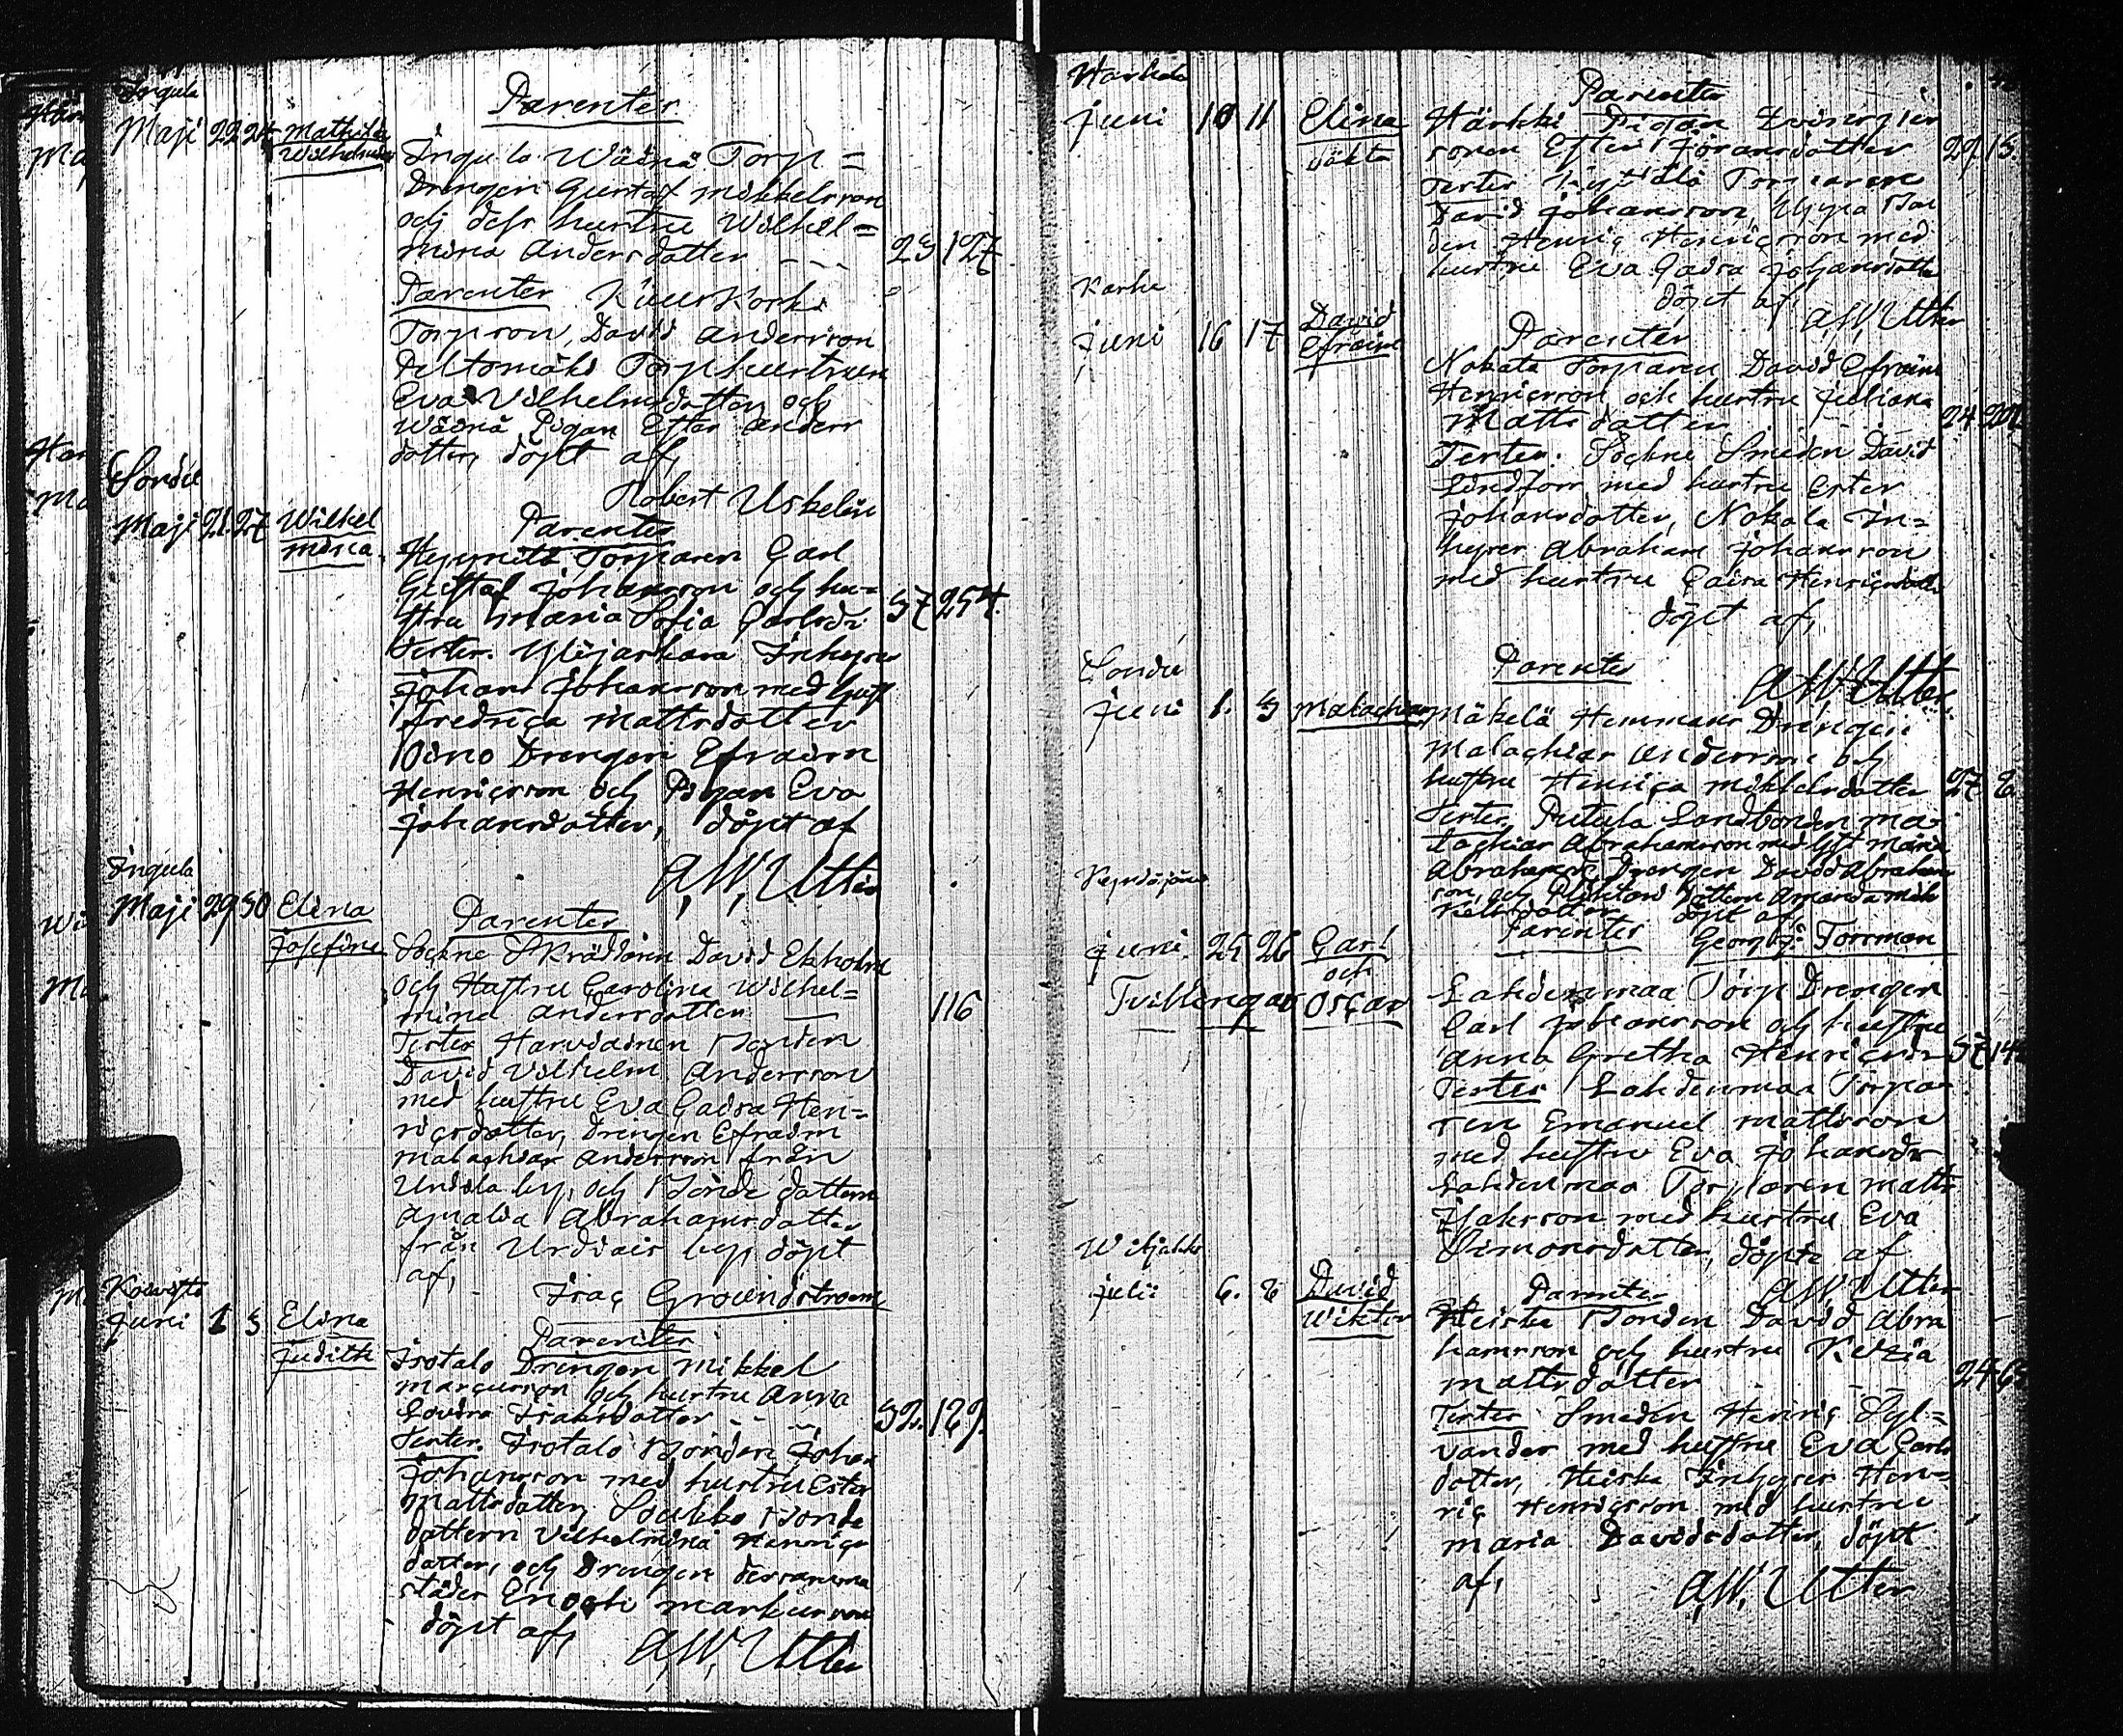 Ingula
Parenter
Maji 22 24 Mathilda
Wilhelmina
Ingula Wäinä Torp=
Drengen Gustaf Mikkelsson
och dess hustru Wilhel=
mina Andersdotter 23 127
Parenter
Torpson, David Andersson
Peltomäki Torphustrun
Eva Vilhelmsdotter och
Wäinä Pigan Ester Anders
dotter, döpt af,
Robert Uskelin
Sordu
Parenter
Maji 21. 27 Wilhel
mina.
Torparen Carl
Gustaf Johansson och hu=
stru Maria Sofia Carlsdr 37 254.
Tester. Ylijaskara Inhyses
Johan Johansson med hust
Fredrica Mattsdotter
Drengen Efraim
Henricsson och Pigan Eva
Johansdotter, döpt af
A, W, Utter
Ingula
Maji 29 30 Elina
Josefina
Parenter
Sockne Skräddaren David Ekholm
och Hustru Carolina Wilhel=
mina Andersdotter 116
Tester Harviainen Bonden
David Vilhelm Andersson
med hustru Eva Caisa Hen=
ricsdotter, Drengen Efraim
Malachias Andersson från
Undila by, och Bonde dottern
Amalia Abrahamsdotter
från Urdiais by, döpt
af,
Isac Grounstroem
Koivisto
Juni 1 3 Elina
Judith
Parenter
Isotalo Drengen Mikkel
Marcusson och hustru Anna
Lovisa Isaksdotter 32. 129.
Tester. Isotalo Bonden Johan
Johansson med hustru Ester
Mattsdotter, Soukko Bonde
dottern Vilhelmina Henrics
dotter, och Drengen dersamma
städes Enock Markusson
döpt af, A, W, Utter
Parenter
Juni 10 11 Elina
Härkki Pigan
Ester Jöransdotter 29. 15.
Tester Torparen
David Johansson, Bon
den Henric Henricsson med
hustru Eva Caisa Johansdotter
döpt af,
A, W, Utter
Karhi
Juni 16 17 David
Efraim
Parenter
Nokala Torparen David Efraim
Henricsson och hustru Juliana
Mattsdotter 24
Tester. Sockne Smeden David
Lindfors med hustru Ester
Johansdotter, Nokala In=
hyses Abraham Johansson
med hustru Caisa Henricsdotter
döpt af,
A W Utter
Sordu
Parenter
Juni 1. 3 Malachias
Mäkelä Hemmans Drengen
Malachias Andersson och
hustru Henrica Mikkelsdotter 27 8.
Tester, Putula Landbonden Ma=
lachias Abrahamsson med hst Maria
Abrahamsdr Drengen David Abraham
son, och dottern Amanda Mik
kelsdotter döpt af,
Georg J: Forsman
Parenter
Juni. 25 26 Carl
och
Tvillingar Oscar
Lahdenmaa Torp Drengen
Carl Johansson och hustru
Anna Gretha Henricsdr 37 14
Tester Lahdenmaa Torpa=
ren Emanuel Mattsson
med hustru Eva Johansdr
Lahdenmaa Torparen Matts
Isaksson med hustru Eva
Simonsdotter, döpte af
A W Utter
Juli 6. 8 David
Wiktor
Parenter
Heiska Bonden David Abra
hamsson och hustru Kezia
Mattsdotter 24 65
Tester Smeden Henric Syl=
vander med hustru Eva Carls
dotter, Heiska Inhyses Hen=
ric Henricsson med hustru
Maria Davidsdotter, döpt
af,
A, W, Utter